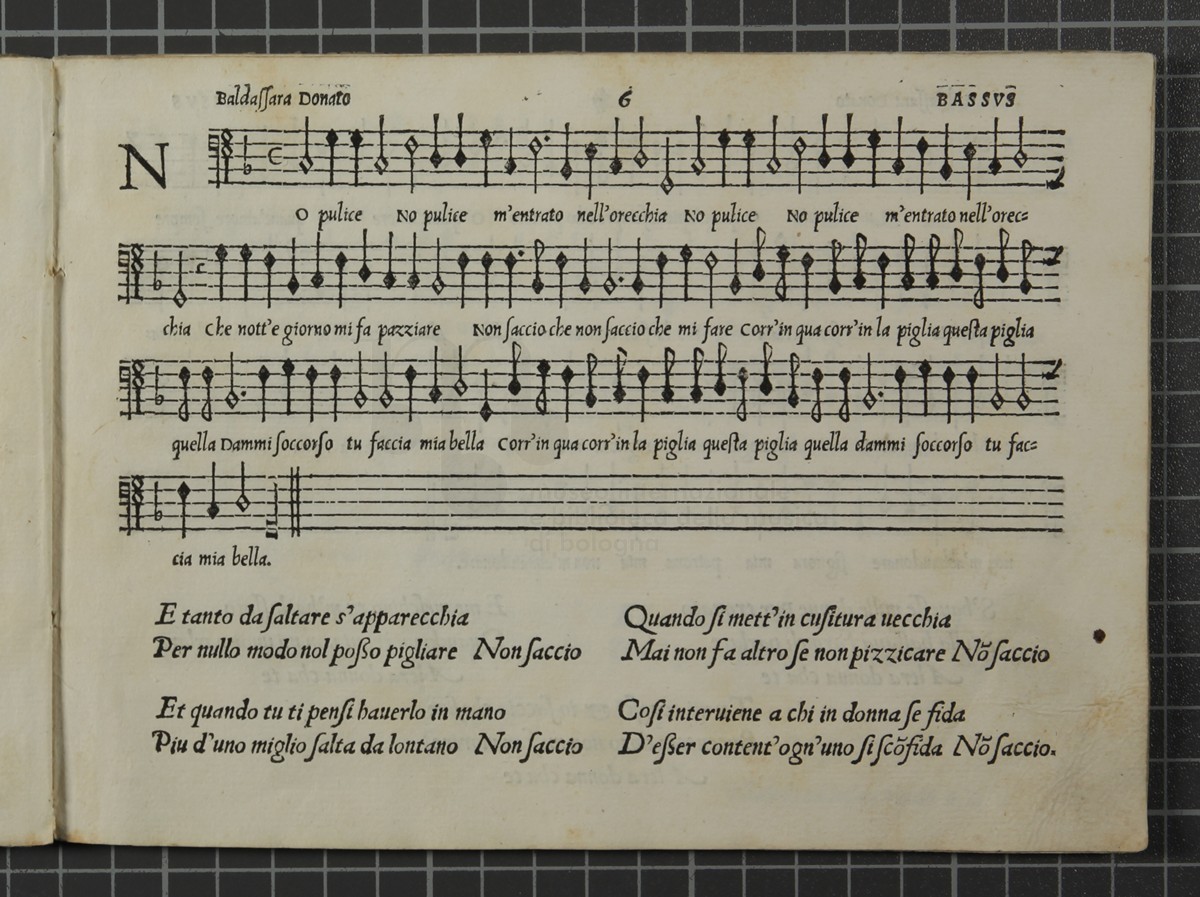 Baldaſſara Donato 6 BASSVS
NO pulice No pulice m'entrato nell'orecchia No pulice No pulice m'entrato nell'orec=
chia Che nott'e giorno mi fa pazziare Non ſaccio che non ſaccio che mi fare Corr'in qua corr'in la piglia queſta piglia
quella Dammi ſoccorſo tu faccia mia bella Corr'in qua corr'in la piglia queſta piglia quella dammi ſoccorſo tu fac=
cia mia bella.
E tanto da ſaltare s'apparecchia
Per nullo modo nol poßo pigliare Non ſaccio
Et quando tu ti penſi hauerlo in mano
Piu d'uno miglio ſalta da lontano Non ſaccio
Quando ſi mett'in cuſitura uecchia
Mai non fa altro ſe non pizzicare Nõ ſaccio
Coſi interuiene a chi in donna ſe fida
D'eßer content'ogn'uno ſi ſcõfida Nõ ſaccio.